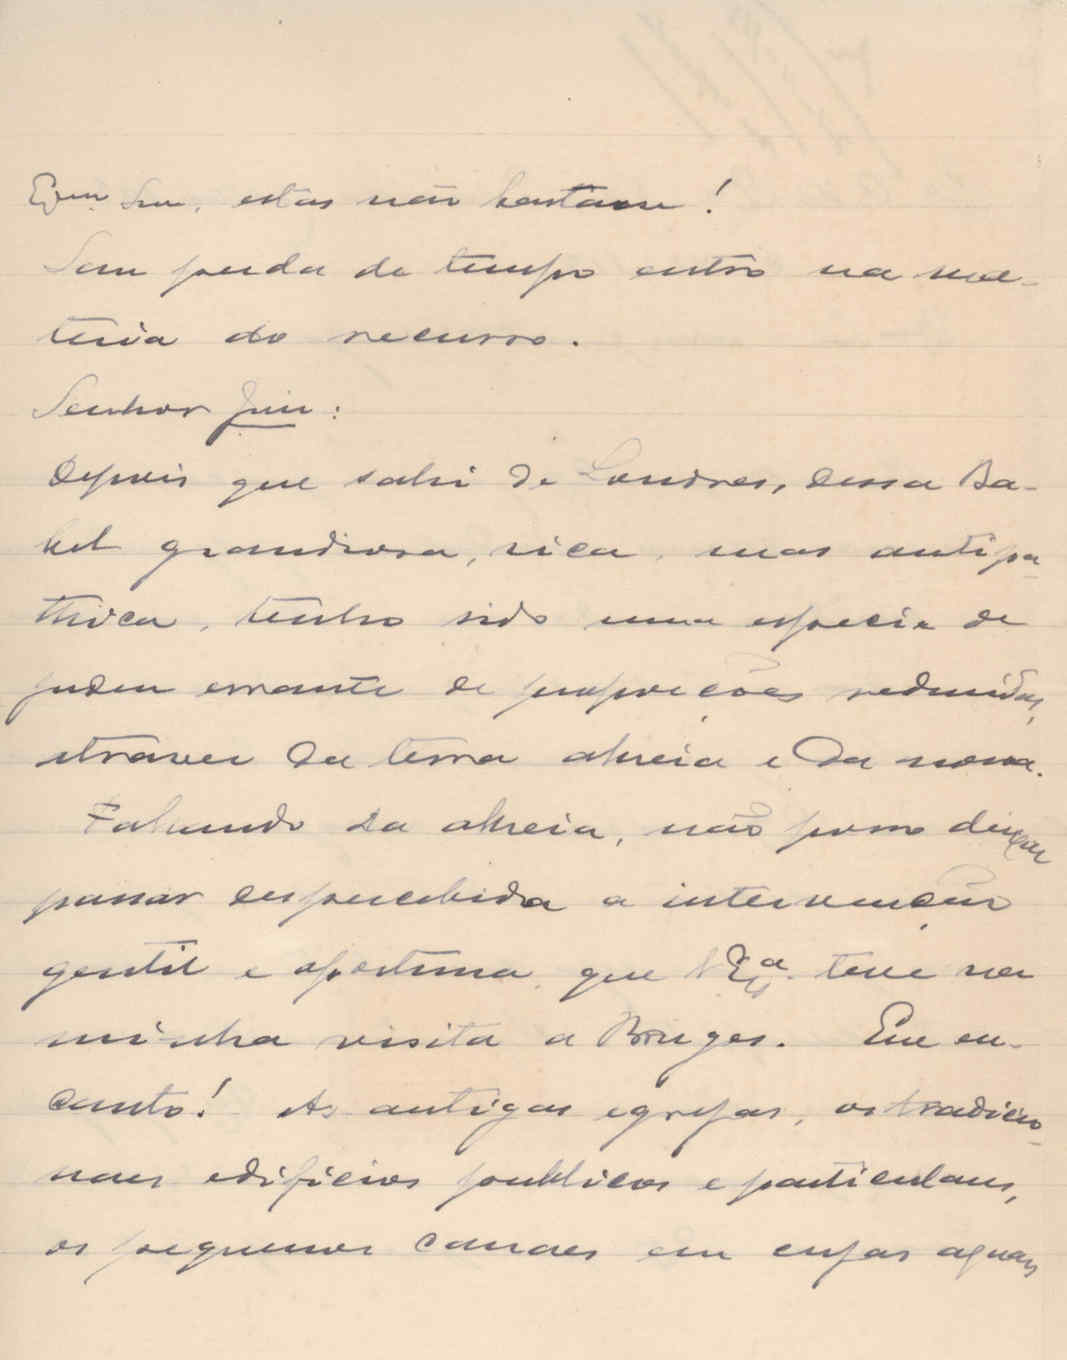 Exmo Snr, estas não bastam!
Sem perda de tempo entro na ma-
teria do recurso.
Senhor Juiz:
Depois que sahi de Londres, dessa Ba-
bel grandiosa, rica, mas antipa-
thica, tenho sido uma especie de
judeu errante de proporções reduzidas,
atravez da terra alheia e da nossa.
Fallando da alheia, não posso deixar
passar despercebida a intervenção
gentil e opportuna que V Exª. teve na
minha visita a Bruges. Que en-
canto! As antigas egrejas, os tradicio-
naes edificios publicos e particulares,
os pequenos canaes em cujas aguas